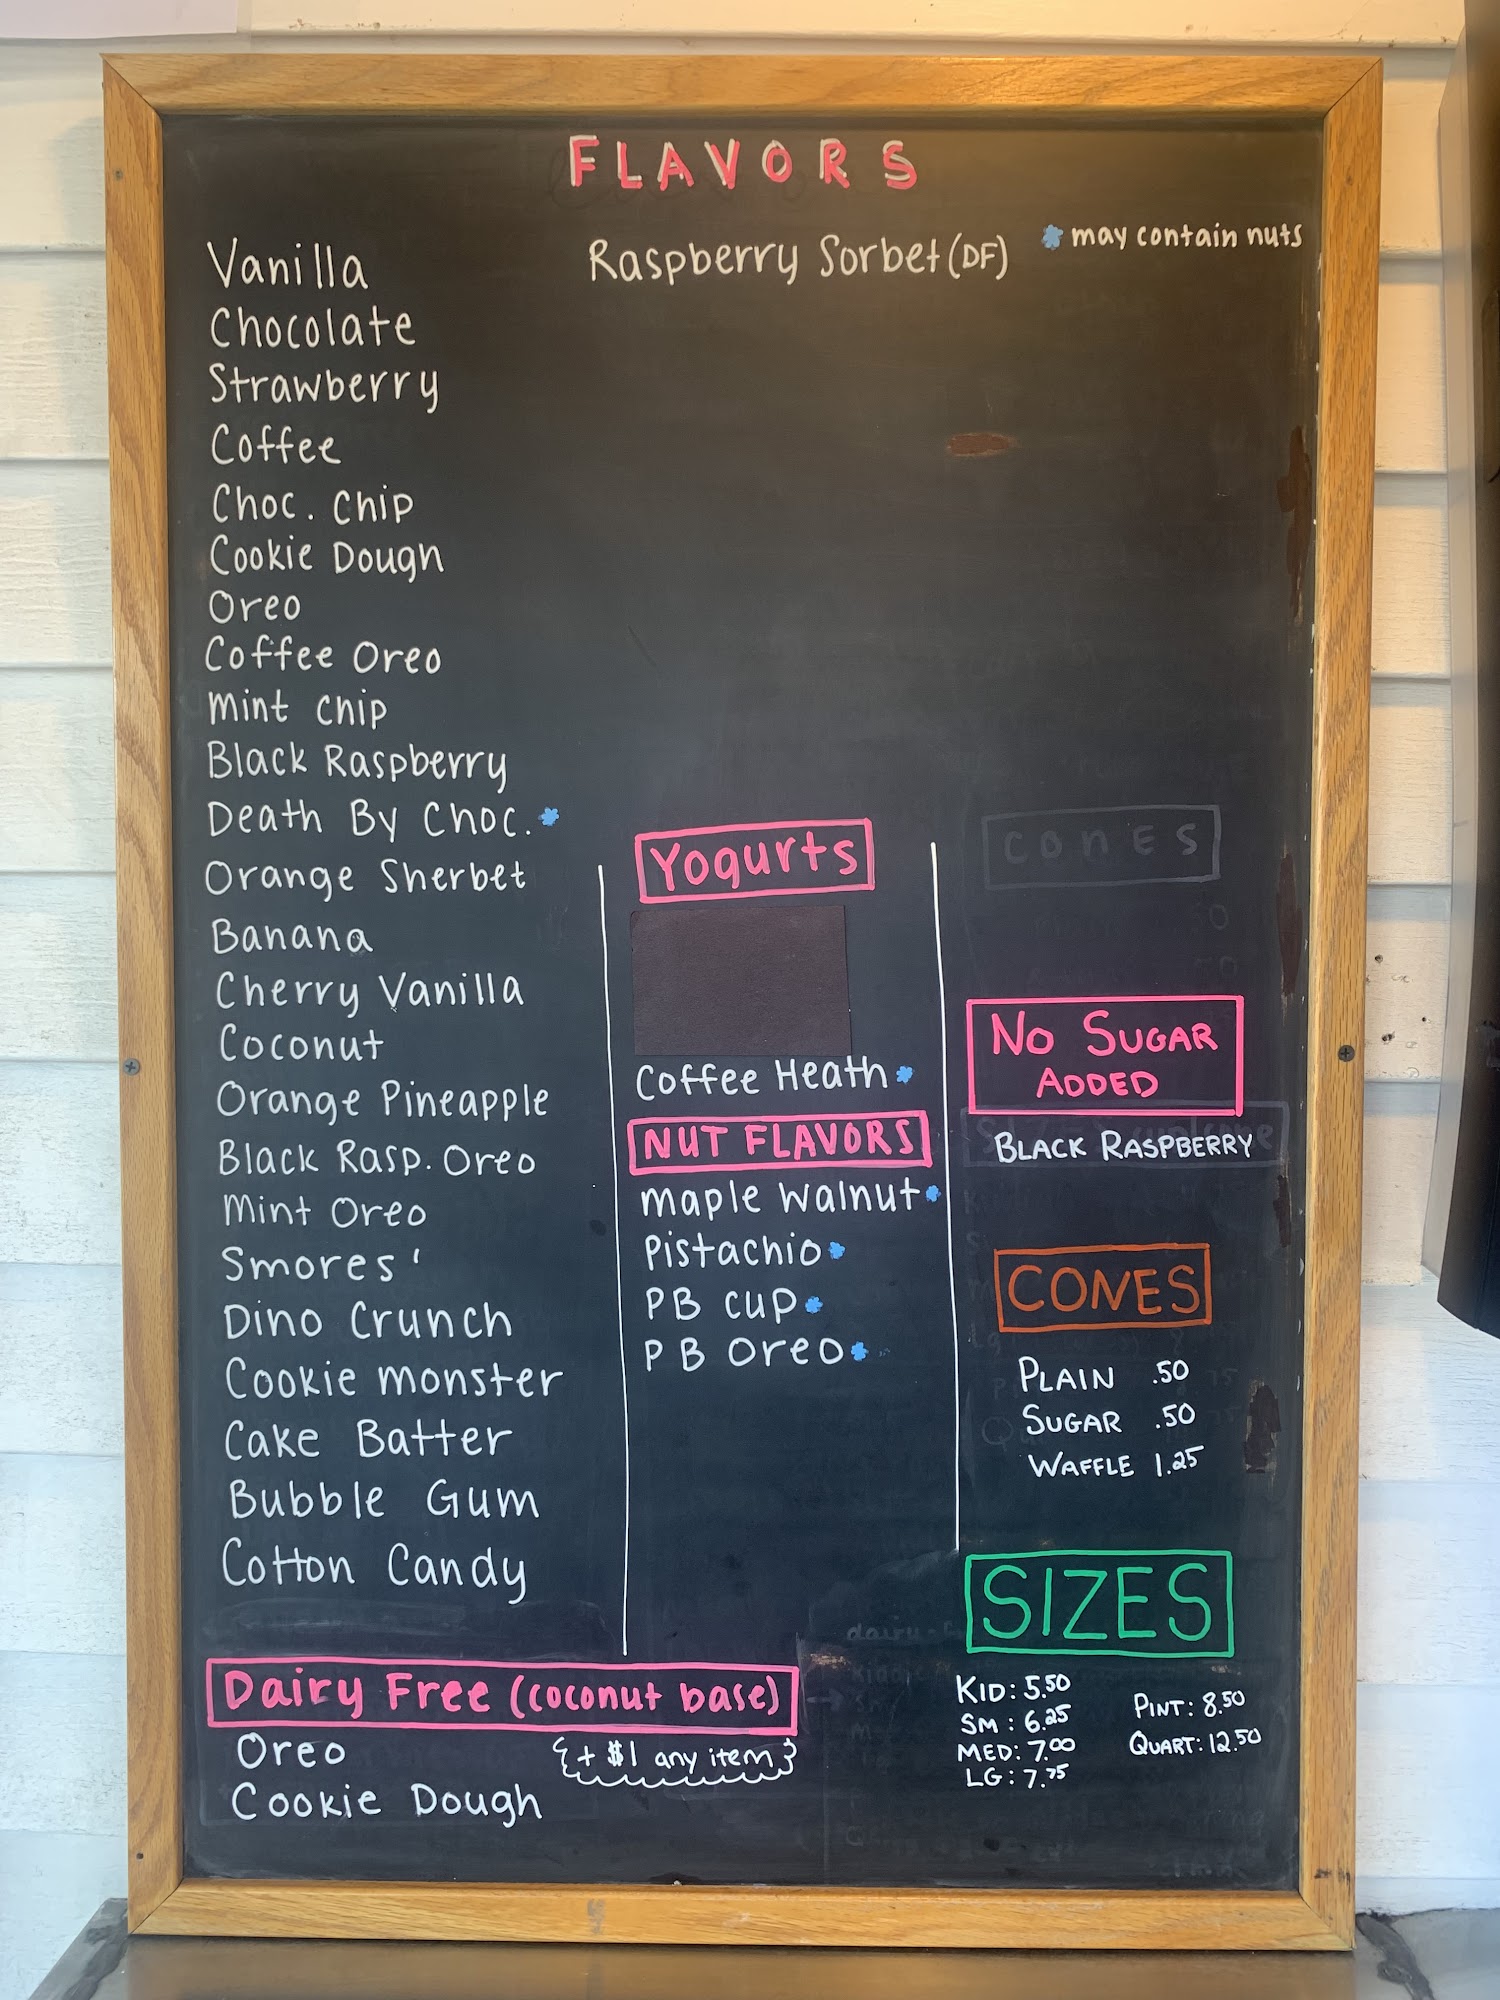 FLAVORS
Vanilla
Chocolate
Strawberry
Coffee
Choc. Chip
Cookie Dough
Oreo
Coffee Oreo
Mint Chip
Black Raspberry
Death By Choc.
Orange Sherbet
Banana
Cherry Vanilla
Coconut
Orange Pineapple
Black Rasp. Oreo
Mint Oreo
Smores'
Dino Crunch
Cookie Monster
Cake Batter
Bubble Gum
Cotton Candy
Raspberry Sorbet (DF)
may contain nuts
Yogurts
Coffee Heath
NUT FLAVORS
Maple Walnut
Pistachio
PB Cup
PB Oreo
CONES
NO SUGAR
ADDED
BLACK RASPBERRY
CONES
PLAIN .50
SUGAR .50
WAFFLE 1.25
SIZES
KID: 5.50
SM: 6.25
MED: 7.00
LG: 7.75
PINT: 8.50
QUART: 12.50
Dairy Free (coconut base)
Oreo
{+ $1 any item}
Cookie Dough